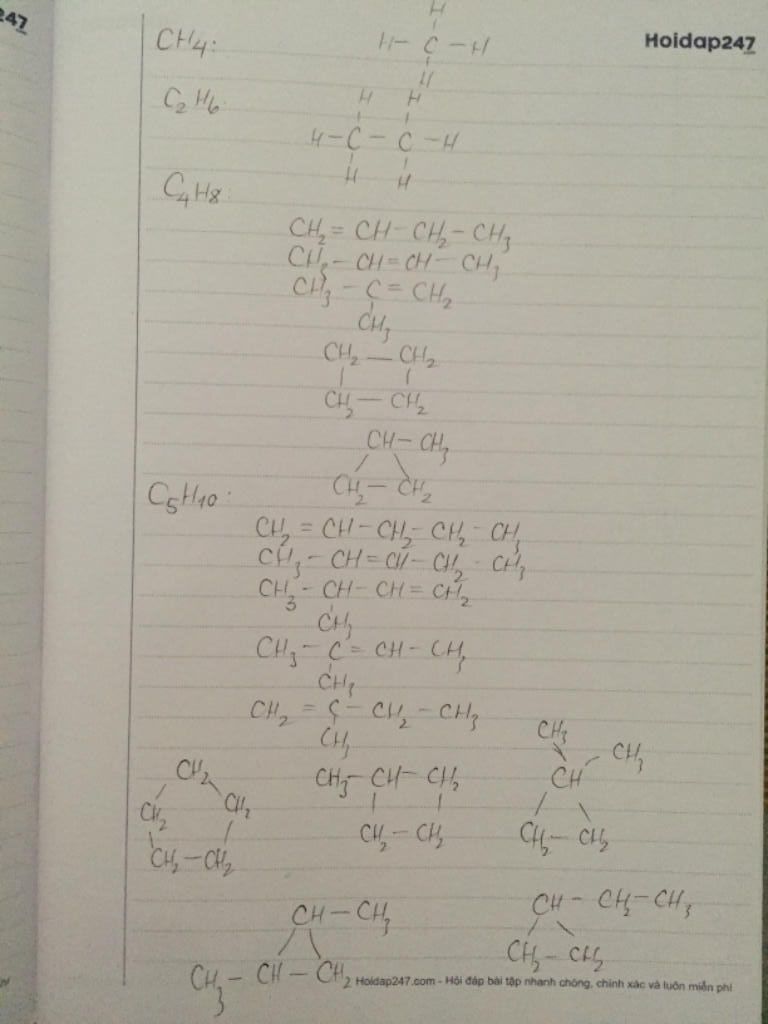 247
Hoidap247
H
CH4:
H - C - H
H
C2H6:
H H
H - C - C - H
H H
C4H8:
CH2 = CH - CH2 - CH3
CH3 - CH = CH - CH3
CH3 - C = CH2
CH3
CH2 — CH2
CH2 — CH2
CH - CH3
CH2 - CH2
C5H10:
CH2 = CH - CH2 - CH2 - CH3
CH3 - CH = CH - CH2 - CH3
CH3 - CH - CH = CH2
CH3
CH3 - C = CH - CH3
CH3
CH2 = C - CH2 - CH3
CH3
CH2
CH2 CH2
CH2 - CH2
CH3 - CH - CH2
CH2 - CH2
CH3 CH3
CH
CH2 - CH2
CH - CH3
CH3 - CH - CH2
CH - CH2 - CH3
CH2 - CH2
Hoidap247.com - Hỏi đáp bài tập nhanh chóng, chính xác và luôn miễn phí